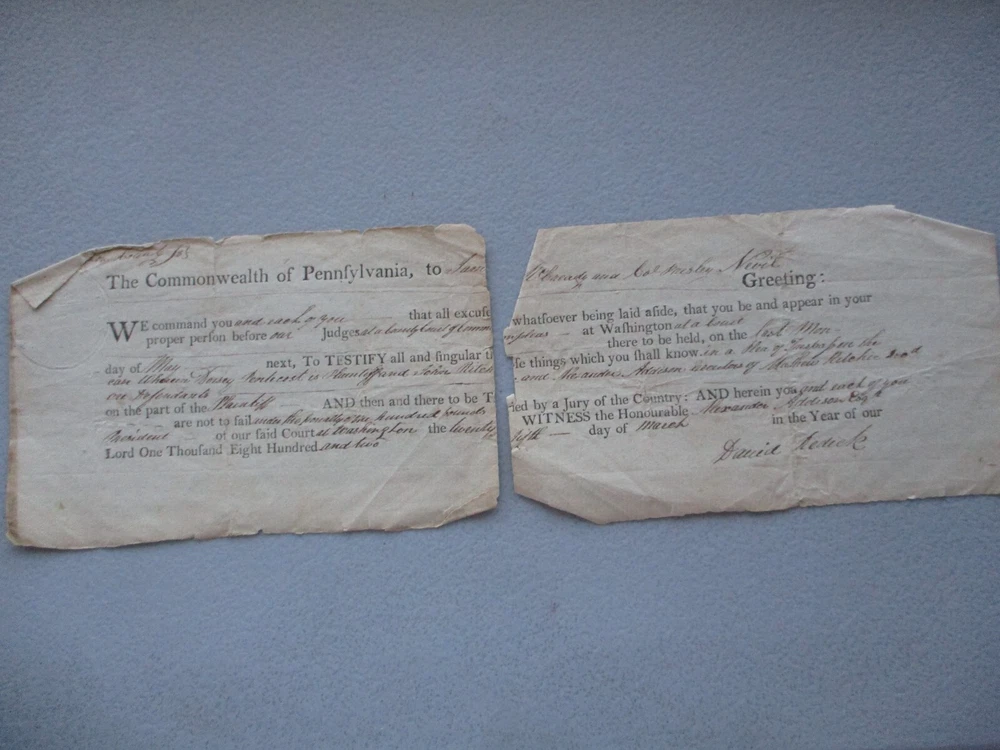 The Commonwealth of Pennſylvania, to
WE command you and each of you that all excuſ
proper perſon before our Judges at a County Court of Common
day of May next, To TESTIFY all and ſingular t
Plaintiff and John
are Defendants
on the part of the Plaintiff AND then and there to be T
— are not to fail under the penalty of one hundred pounds
President — of our ſaid Court at Washington the twenty
Lord One Thouſand Eight Hundred and two
and Col Presley Nevil
Greeting:
whatſoever being laid aſide, that you be and appear in your
pleas — at Waſhington at a Court
there to be held, on the last Mon-
ſe things which you ſhall know in a
and Alexander Addison
ried by a Jury of the Country: AND herein you and each of you
WITNESS the Honourable Alexander Addison Esqr
fifth — day of March in the Year of our
David Redick